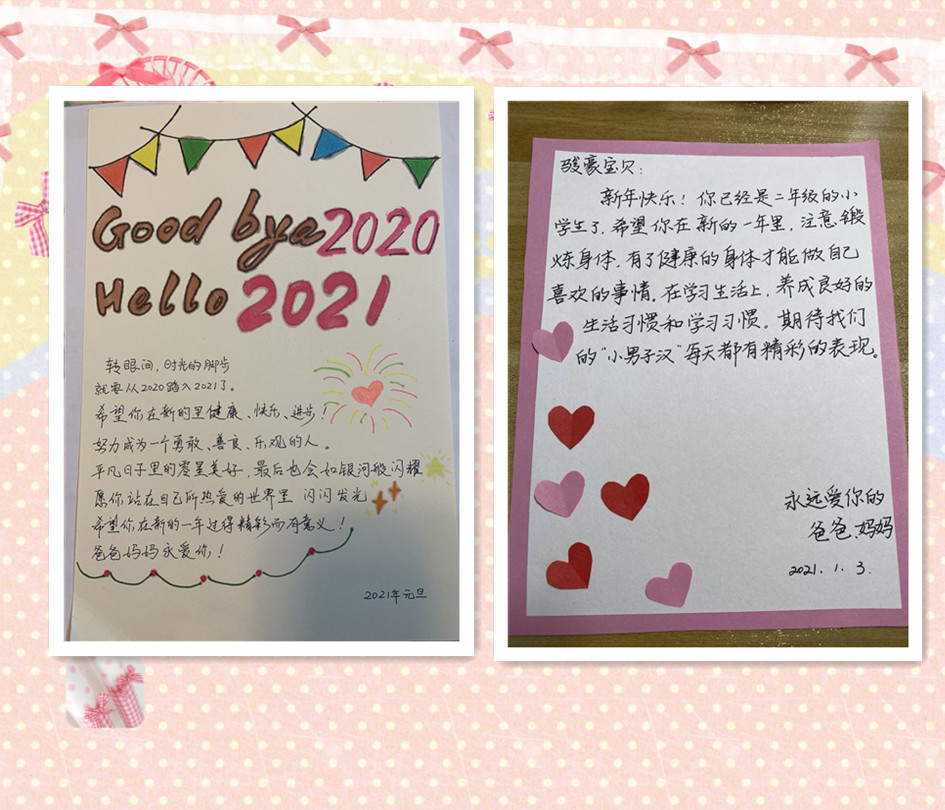 Good bye 2020
Hello 2021
转眼间,时光的脚步
就要从2020踏入2021了。
希望你在新的里健康、快乐、进步!
努力成为一个勇敢、善良、乐观的人。
平凡日子里的零星美好,最后也会如银河般闪耀
愿你站在自己所热爱的世界里 闪闪发光
希望你在新的一年过得精彩而有意义!
爸爸妈妈永爱你!
2021年元旦
骏豪宝贝:
新年快乐!你已经是二年级的小
学生了,希望你在新的一年里,注意锻
炼身体,有了健康的身体才能做自己
喜欢的事情。在学习生活上,养成良好的
生活习惯和学习习惯。期待我们
的“小男子汉”每天都有精彩的表现。
永远爱你的
爸爸、妈妈
2021.1.3.